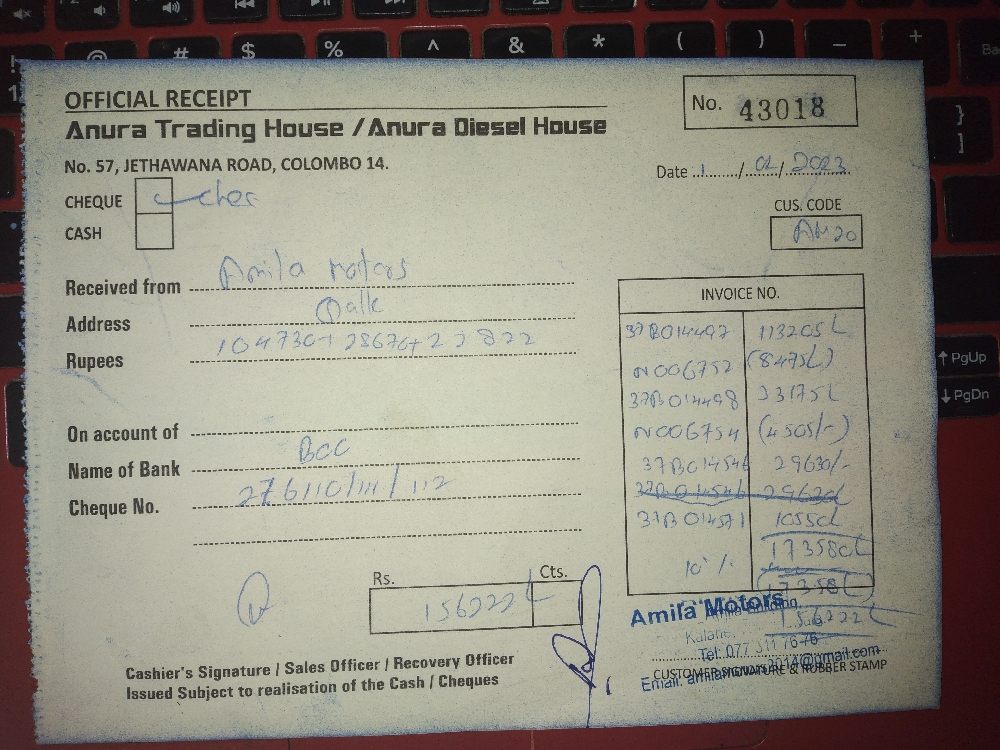 OFFICIAL RECEIPT
No. 43018
Anura Trading House / Anura Diesel House
No. 57, JETHAWANA ROAD, COLOMBO 14.
Date 1 / 02 / 2023
CHEQUE
CASH
CUS. CODE
AM20
Received from Amila Motors
Address Galle
Rupees 104730+28670+22822
On account of
Name of Bank BOC
Cheque No. 276110/111/112
INVOICE NO.
37B014497 113205/-
N006752 (8475/-)
37B014498 33175/-
N006754 (4505/-)
37B014546 29630/-
37B014546 29630/-
37B014571 10550/-
173580/-
10%
17358/-
156222/-
Rs. Cts.
156222/-
Amila Motors
Tel: 077 311 7676
CUSTOMER SIGNATURE & RUBBER STAMP
Cashier's Signature / Sales Officer / Recovery Officer
Issued Subject to realisation of the Cash / Cheques
PgUp
PgDn
# $ % ^ & * ( ) _ +